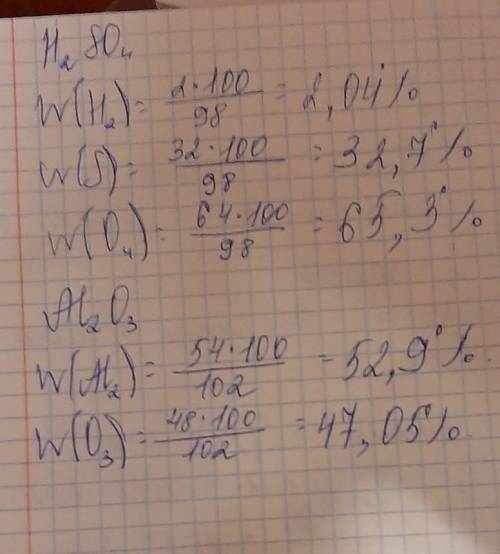 H₂SO₄
W(H₂) = 2·100/98 = 2,04%
W(S) = 32·100/98 = 32,7%
W(O₄) = 64·100/98 = 65,3%
Al₂O₃
W(Al₂) = 54·100/102 = 52,9%
W(O₃) = 48·100/102 = 47,05%